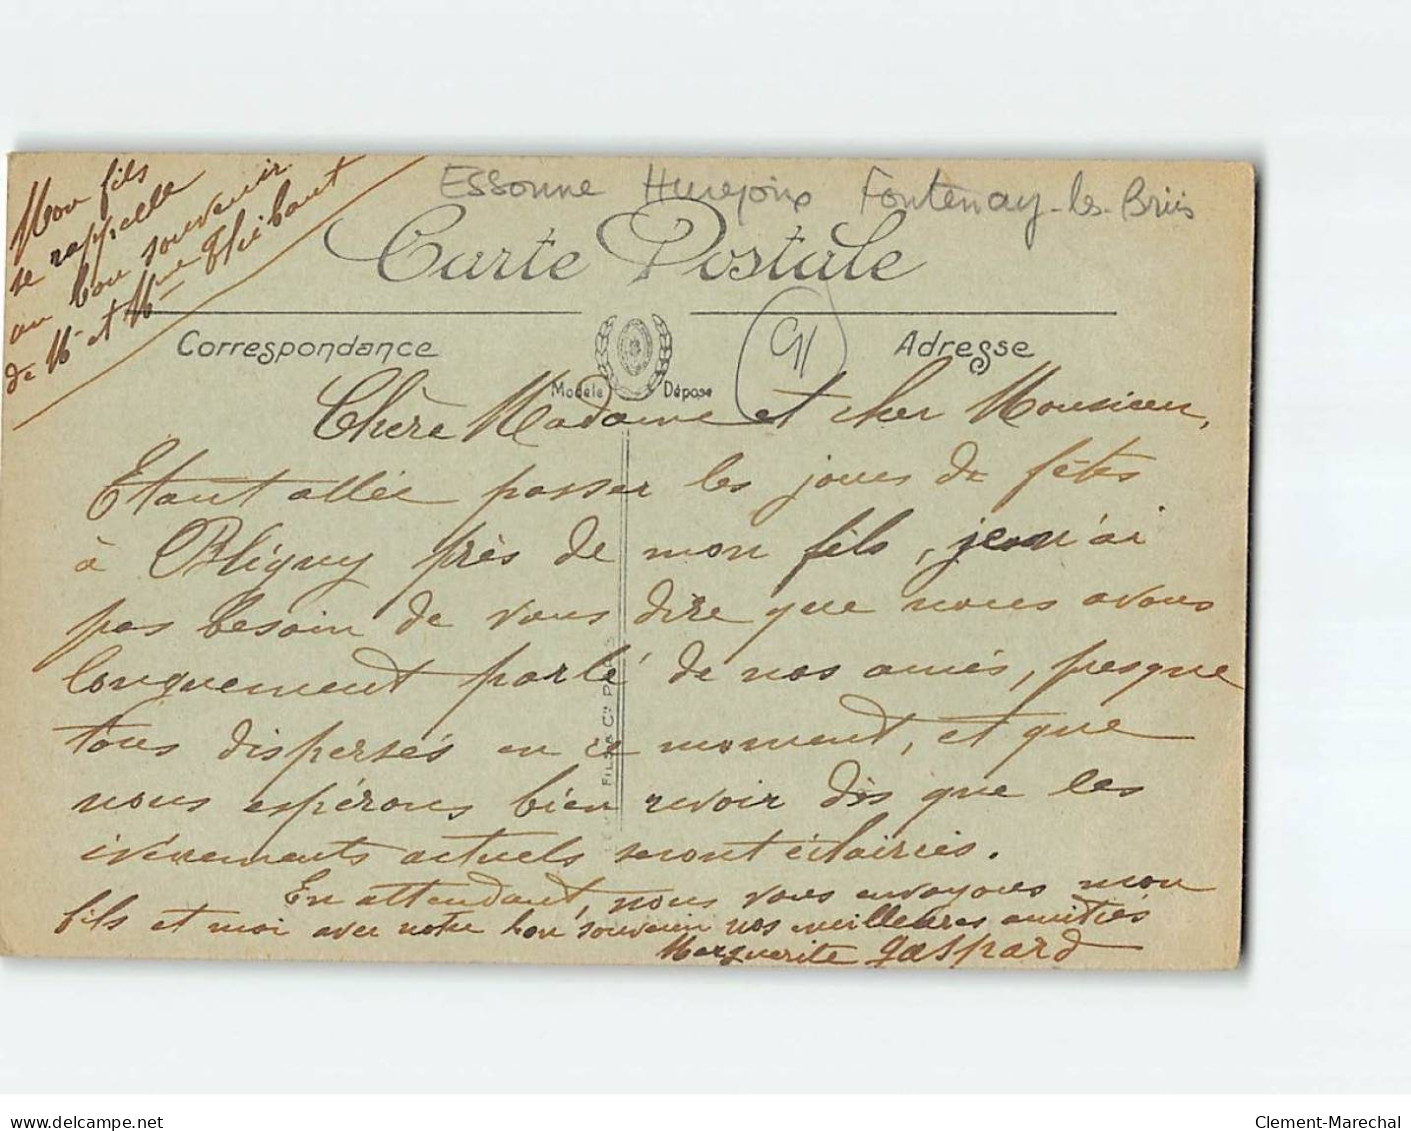 Mon fils
se rappelle
au bon souvenir
de Mr et Mme Thibaut
Essonne Hurepoix Fontenay-les-Briis
Carte Postale
91
Correspondance
Adresse
Modèle Déposé
Chère Madame et cher Monsieur,
Etant allée passer les jours de fêtes
à Bligny près de mon fils, je n'ai
pas besoin de vous dire que nous avons
longuement parlé de nos amis, presque
tous dispersés en ce moment, et que
nous espérons bien revoir dès que les
évènements actuels seront éclaircis.
En attendant, nous vous envoyons mon
fils et moi avec notre bon souvenir nos meilleures amitiés
Marguerite Gaspard
FILS & Cie
delcampe.net
Clement-Marechal